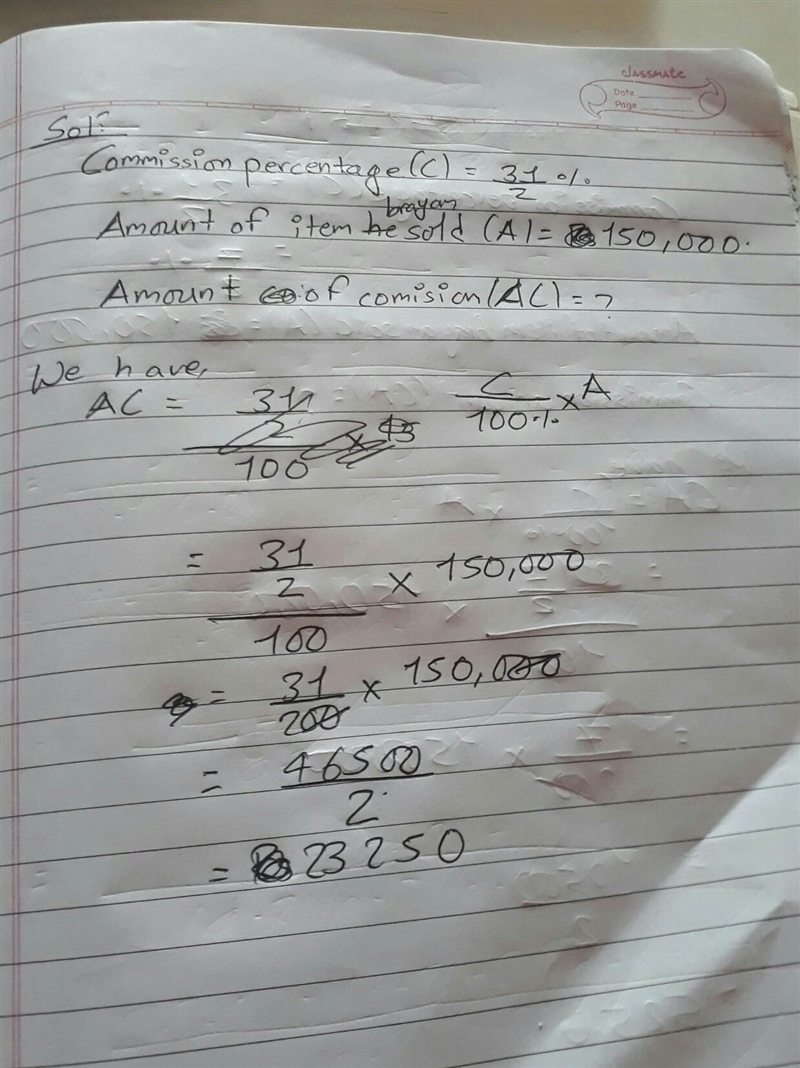 classmate
Date
Page
Sol?
Commission percentage (C) = 31/2 %.
brayan
Amount of item he sold (A) = 150,000.
Amount of comision (AC) = ?
We have,
AC = 31/2 / 100 C/100% x A
= 31/2 / 100 x 150,000
= 31/200 x 150,000
= 46500/2
= 23250